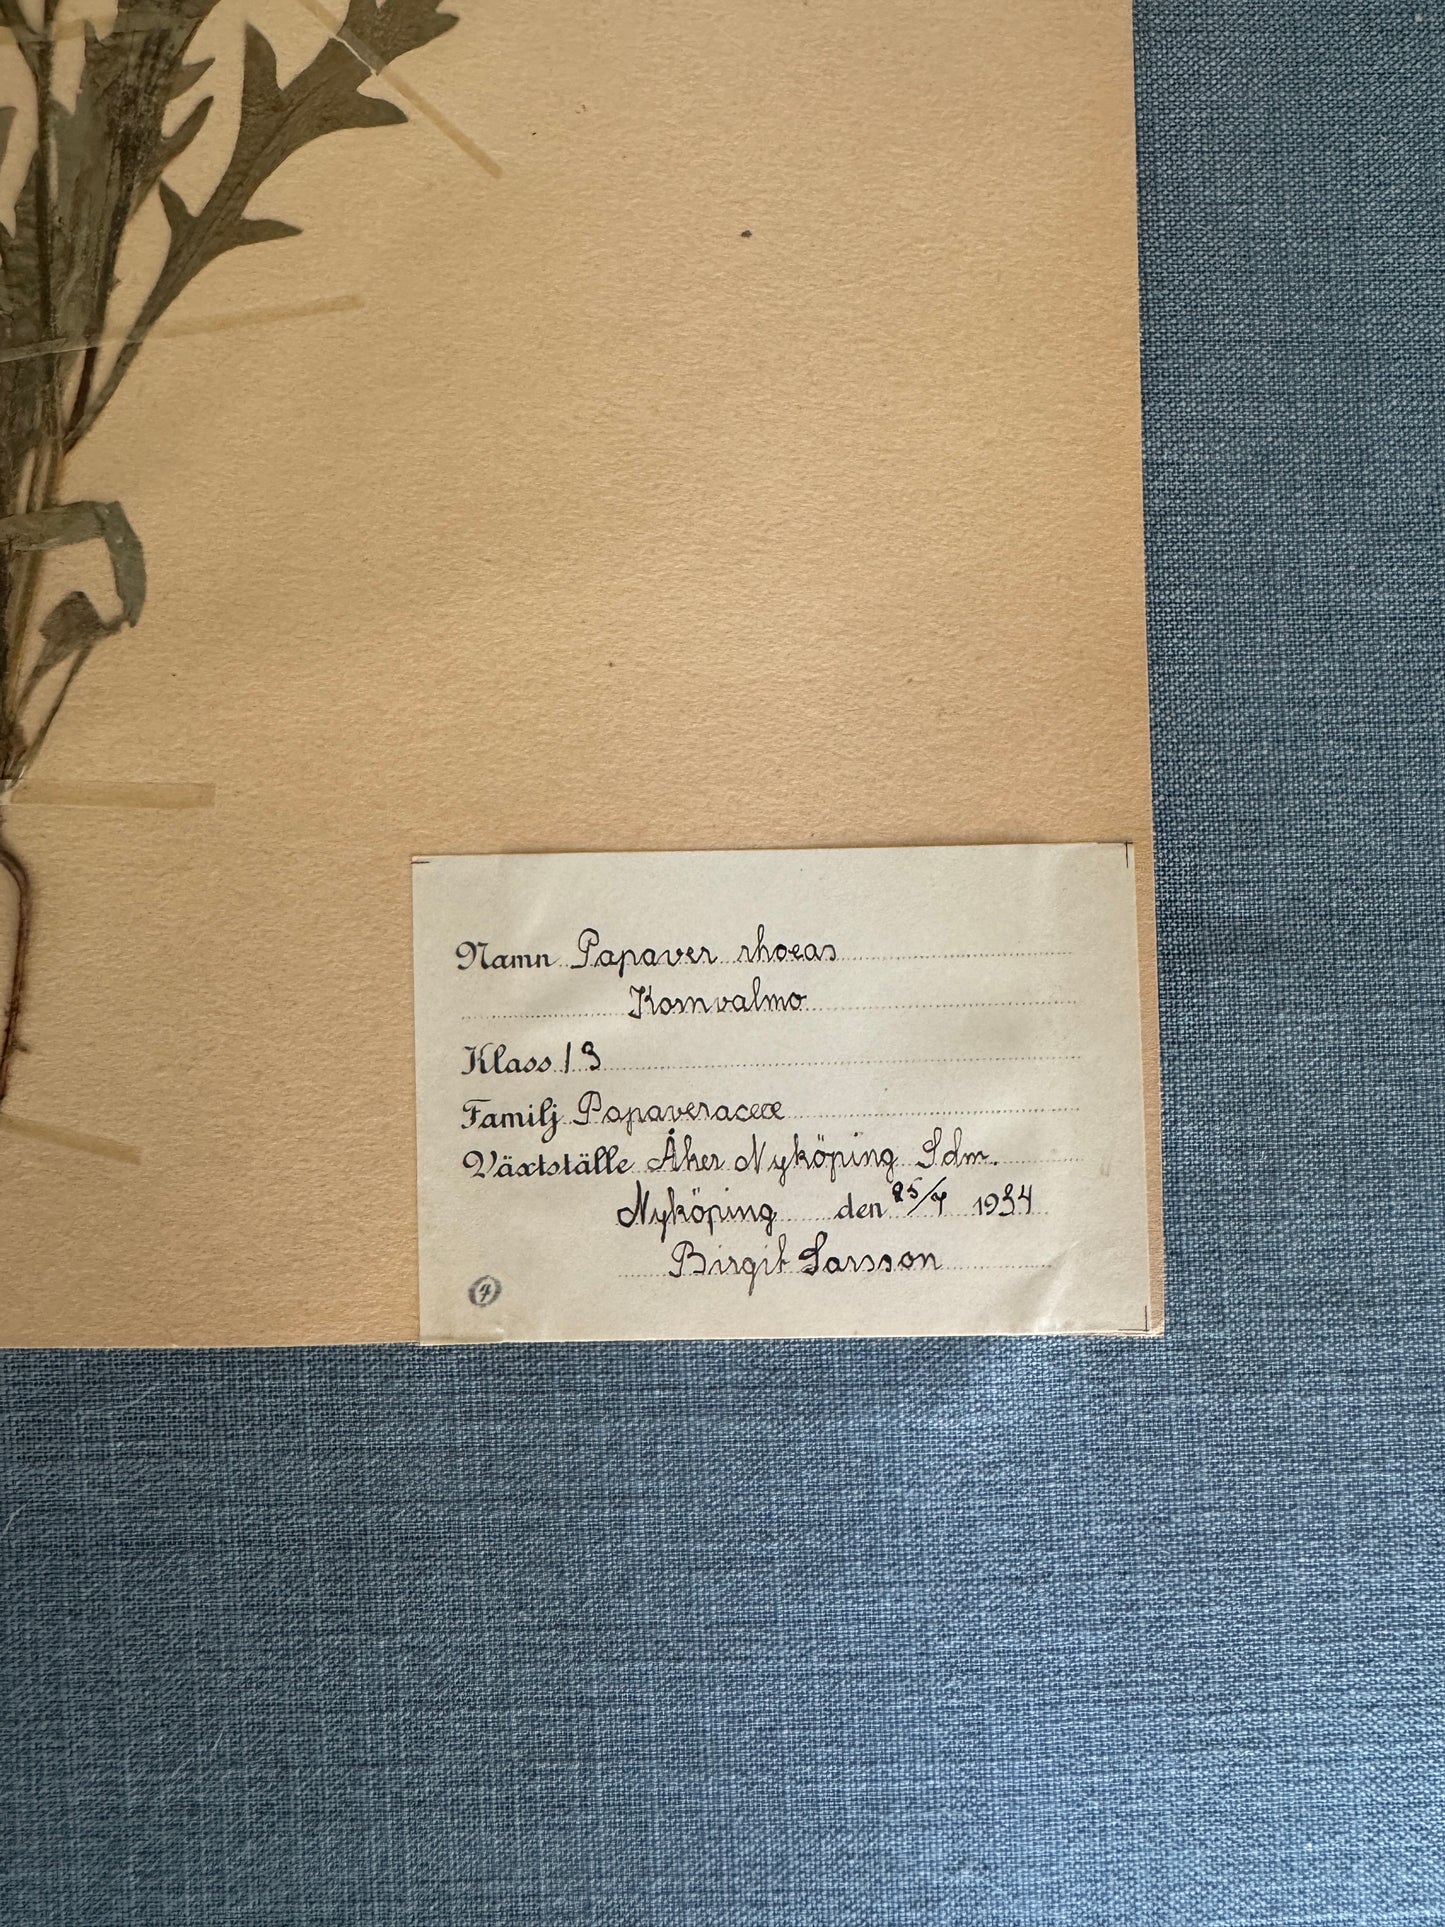 Namn Papaver rhoeas
Kornvalmo
Klass 13
Familj Papaveraceæ
Växtställe Åker Nyköping Sdm.
Nyköping den 25/7 1934
Birgit Larsson
4